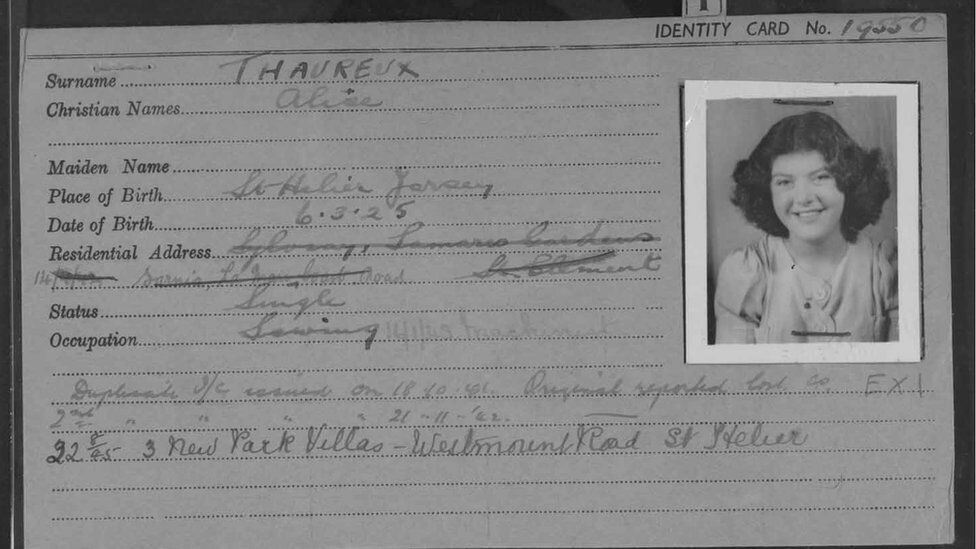 IDENTITY CARD No. 19550
Surname THAUREUX
Christian Names Alice
Maiden Name
Place of Birth St Helier Jersey
Date of Birth 6.3.25
Residential Address Samares Gardens
Sarnia, Road St. Clement
Status Single
Occupation Sewing
Duplicate I/C issued on 18.10.41. Original reported lost. EX 1
2nd " " " " 21-11-'42.
22 8/45 3 New Park Villas - Westmount Road St Helier